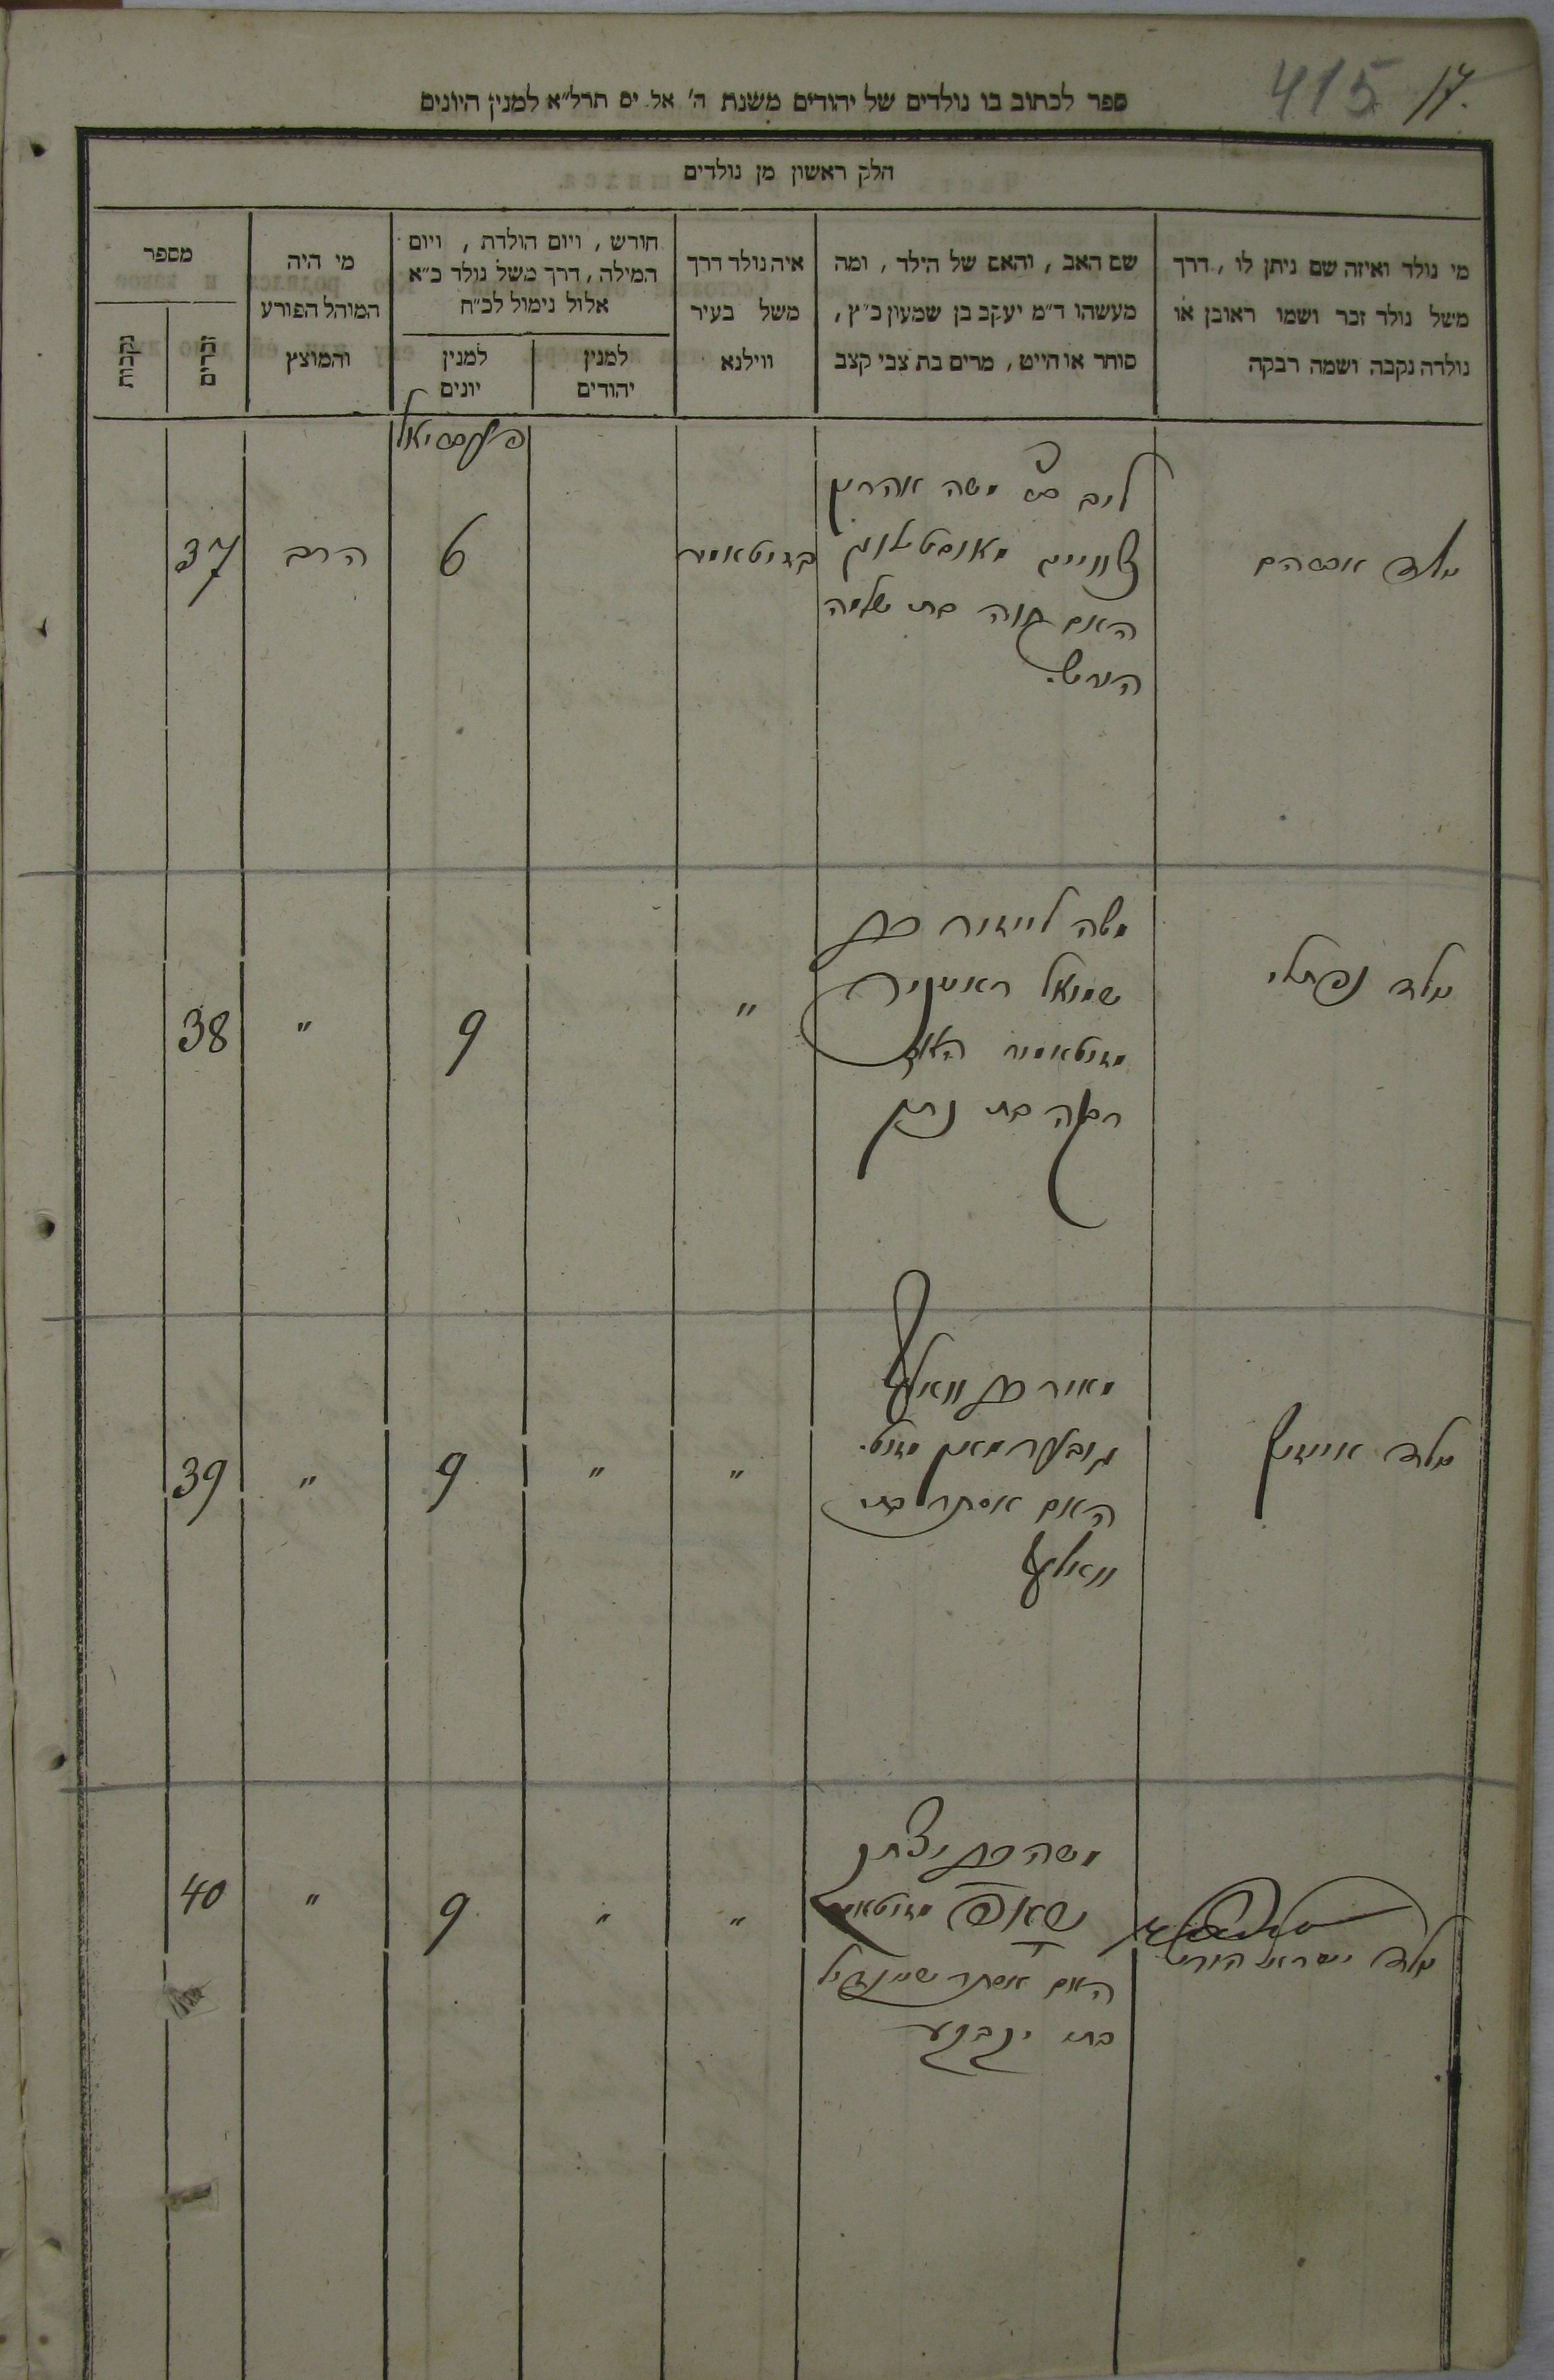 415 17.
ספר לכתוב בו נולדים של יהודים משנת ה' אל יס תרל״א למנין היונים
חלק ראשון מן נולדים
מי נולד ואיזה שם ניתן לו, דרך
משל נולד זכר ושמו ראובן או
נולדה נקבה ושמה רבקה
שם האב, והאם של הילד, ומה
מעשהו ד״מ יעקב בן שמעון כ״ץ,
סוחר או חייט, מרים בת צבי קצב
איה נולד דרך
משל בעיר
ווילנא
חודש, ויום הולדת, ויום
המילה, דרך משל נולד כ״א
אלול נימול לכ״ח
למנין
יהודים
למנין
יונים
מי היה
המוהל הפורע
והמוצץ
מספר
זכרים
נקבות
נולד אברהם
ליב בן משה אהרון
האם חוה בת שלמה
הירש.
בזיטאמיר
6
הרב
37
נולד נפתלי
משה לייזיר בן
שמואל
מזיטאמיר האם
רבקה בת נתן
"
9
"
38
נולד אייזיק
מאיר בן וואלף
מזיט.
האם אסתר בת
וואלף
"
"
9
"
39
נולד ישראל
משה בן יצחק
מזיטאמיר
האם אסתר שיינדיל
בת
"
"
9
"
40